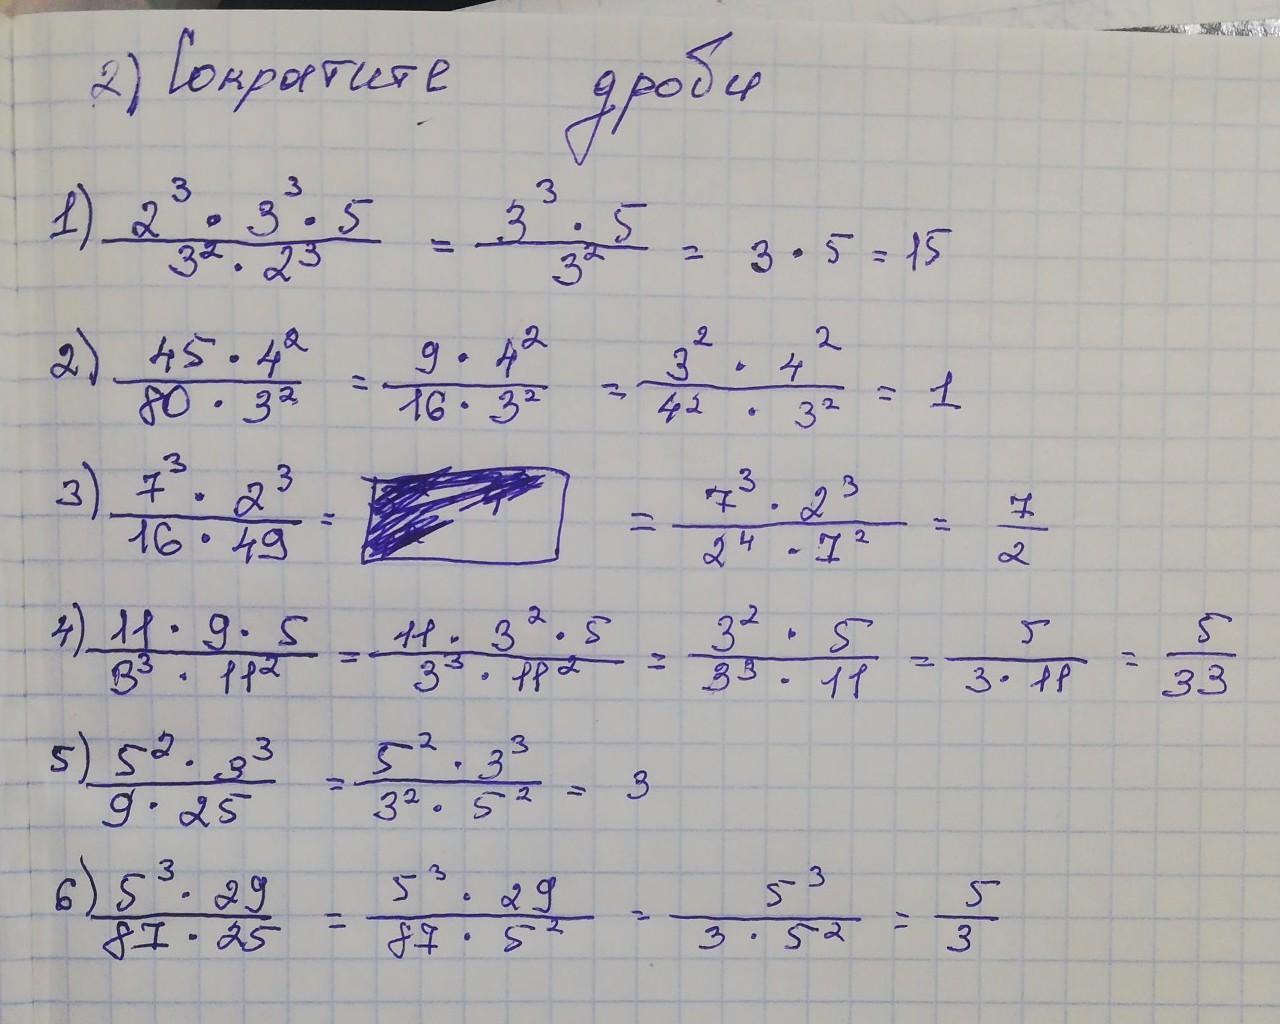 2) Сократите дроби
1) (2³ · 3³ · 5)/(3² · 2³) = (3³ · 5)/3² = 3 · 5 = 15
2) (45 · 4²)/(80 · 3²) = (9 · 4²)/(16 · 3²) = (3² · 4²)/(4² · 3²) = 1
3) (7³ · 2³)/(16 · 49) = = (7³ · 2³)/(2⁴ · 7²) = 7/2
4) (11 · 9 · 5)/(3³ · 11²) = (11 · 3² · 5)/(3³ · 11²) = (3² · 5)/(3³ · 11) = 5/(3 · 11) = 5/33
5) (5² · 3³)/(9 · 25) = (5² · 3³)/(3² · 5²) = 3
6) (5³ · 29)/(87 · 25) = (5³ · 29)/(87 · 5²) = 5³/(3 · 5²) = 5/3